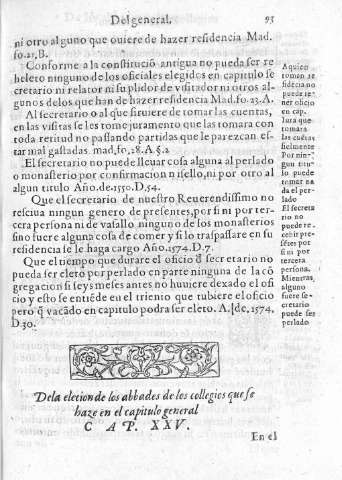 Del general,
95
ni otro alguno que ouiere de hazer residencia Mad.
fo.21.B.
Conforme a la constitució antigua no pueda ser re
heleto ninguno de los oficiales elegidos en capitulo se
cretario ni relator ni suplidor de visitador ni otros al-
gunos delos que han de hazer residencia Mad.fo.23.A.
Al secretario o al que siruiere de tomar las cuentas,
en las visitas se les tome juramento que las tomara con
toda retitud no passando partidas que le parezcan es-
tar mal gastadas. mad.fo.28.A.§.2
El secretario no puede lleuar cosa alguna al perlado
o monasterio por confirmacion ni sello, ni por otro al
algun titulo Año.de.1550.D.54.
Que el secretario de nuestro Reuerendissimo no
resciua ningun genero de presentes, por si ni por ter-
cera persona ni de vasallo ninguno de los monasterios
sino fuere alguna cosa de comer y si lo traspassare en su
residencia se le haga cargo Año.1574.D.7.
Que el tiempo que durare el oficio đ secretario no
pueda ser eleto por perlado en parte ninguna de la cō
gregacion si seys meses antes no huuiere dexado el ofi
cio y esto se entiēde en el trienio que tubiere el oficio
pero q̃ vacādo en capitulo podra ser eleto. A.de.1574.
D.30.
A quien
tomen re
sidencia no
puede te-
ner oficio
en cap.
Iura que
tomara
las cuētas
fielmente
Por nin-
gun titu-
lo puede
tomar na
da el per-
lado
El secreta
rio no
puede re-
cebir pre-
sētes por
si ni por
tercera
persona.
Mientras,
alguno
fuere se-
cretario
puede ser
perlado
Dela elecion de los abbades de los collegios que se
haze en el capitulo general
CAP. XXV.
En el